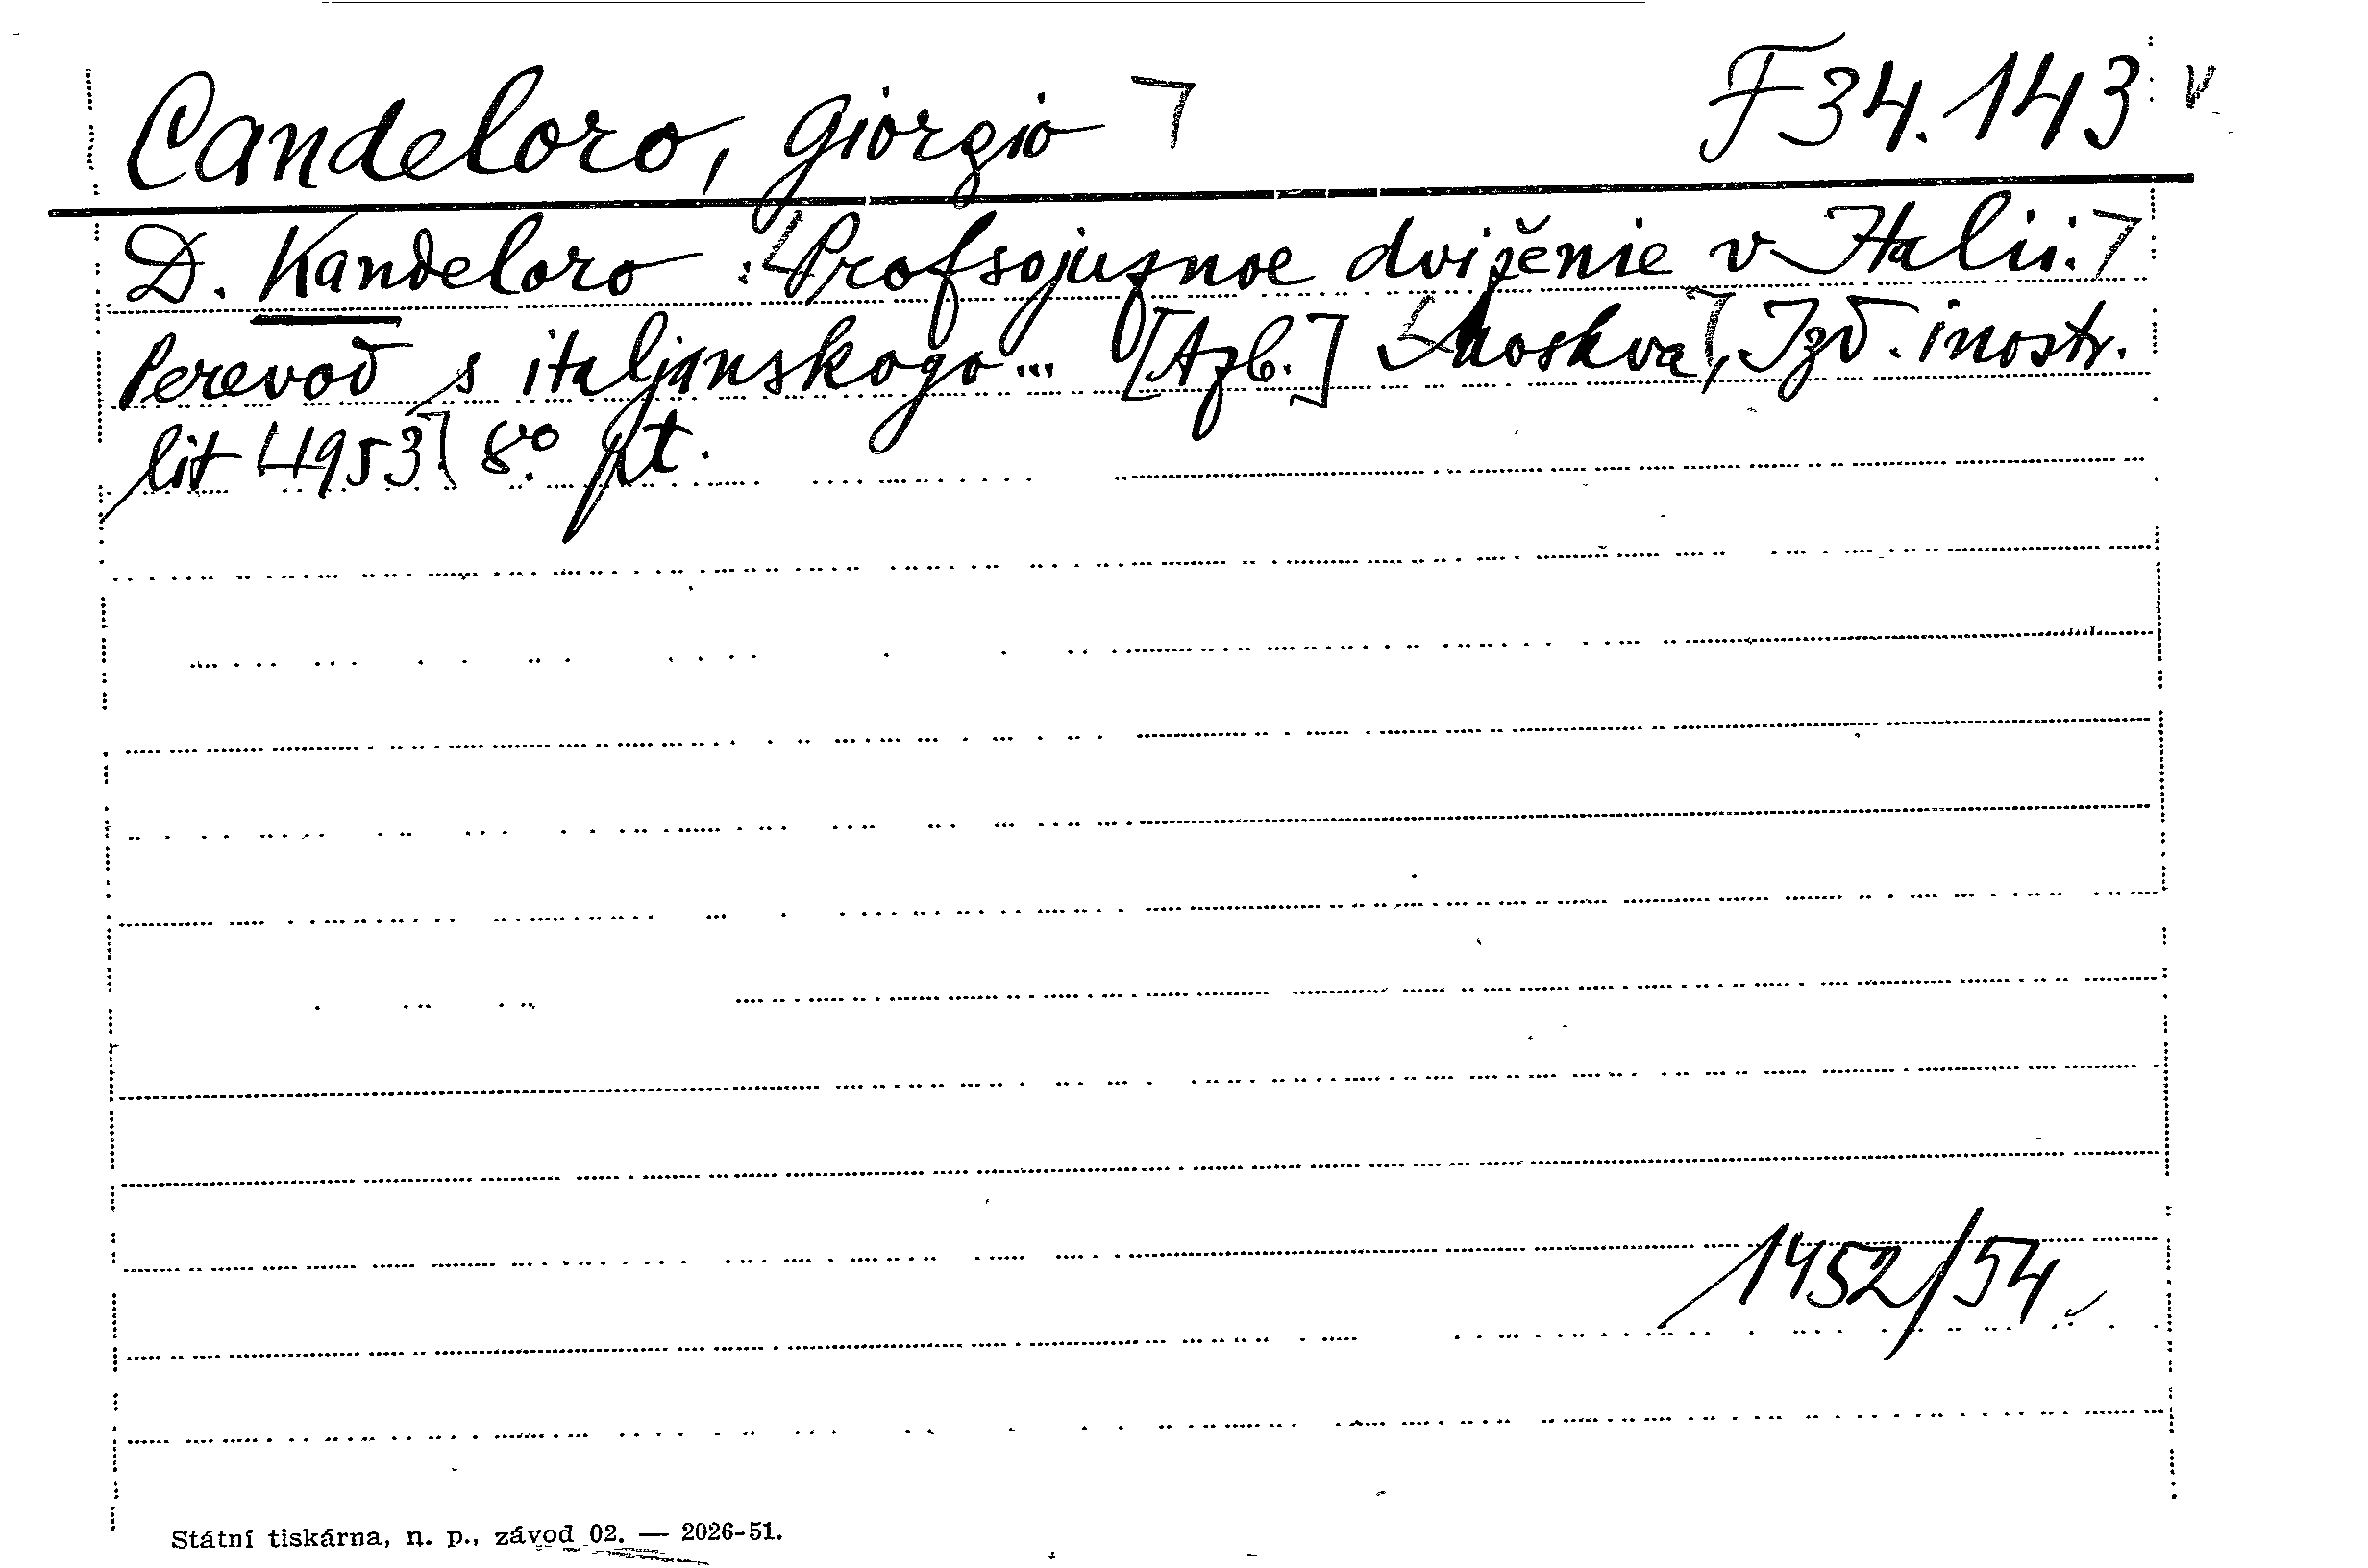 Candeloro, Giorgio F 34.143 v
D. Kandeloro: Profsojuznoe dviženie v Italii.
Perevod s italjanskogo... [Azb.] Moskva, Izd. inostr.
lit 1953. 8° pt.
1452/54
Státní tiskárna, n. p., závod 02. — 2026-51.